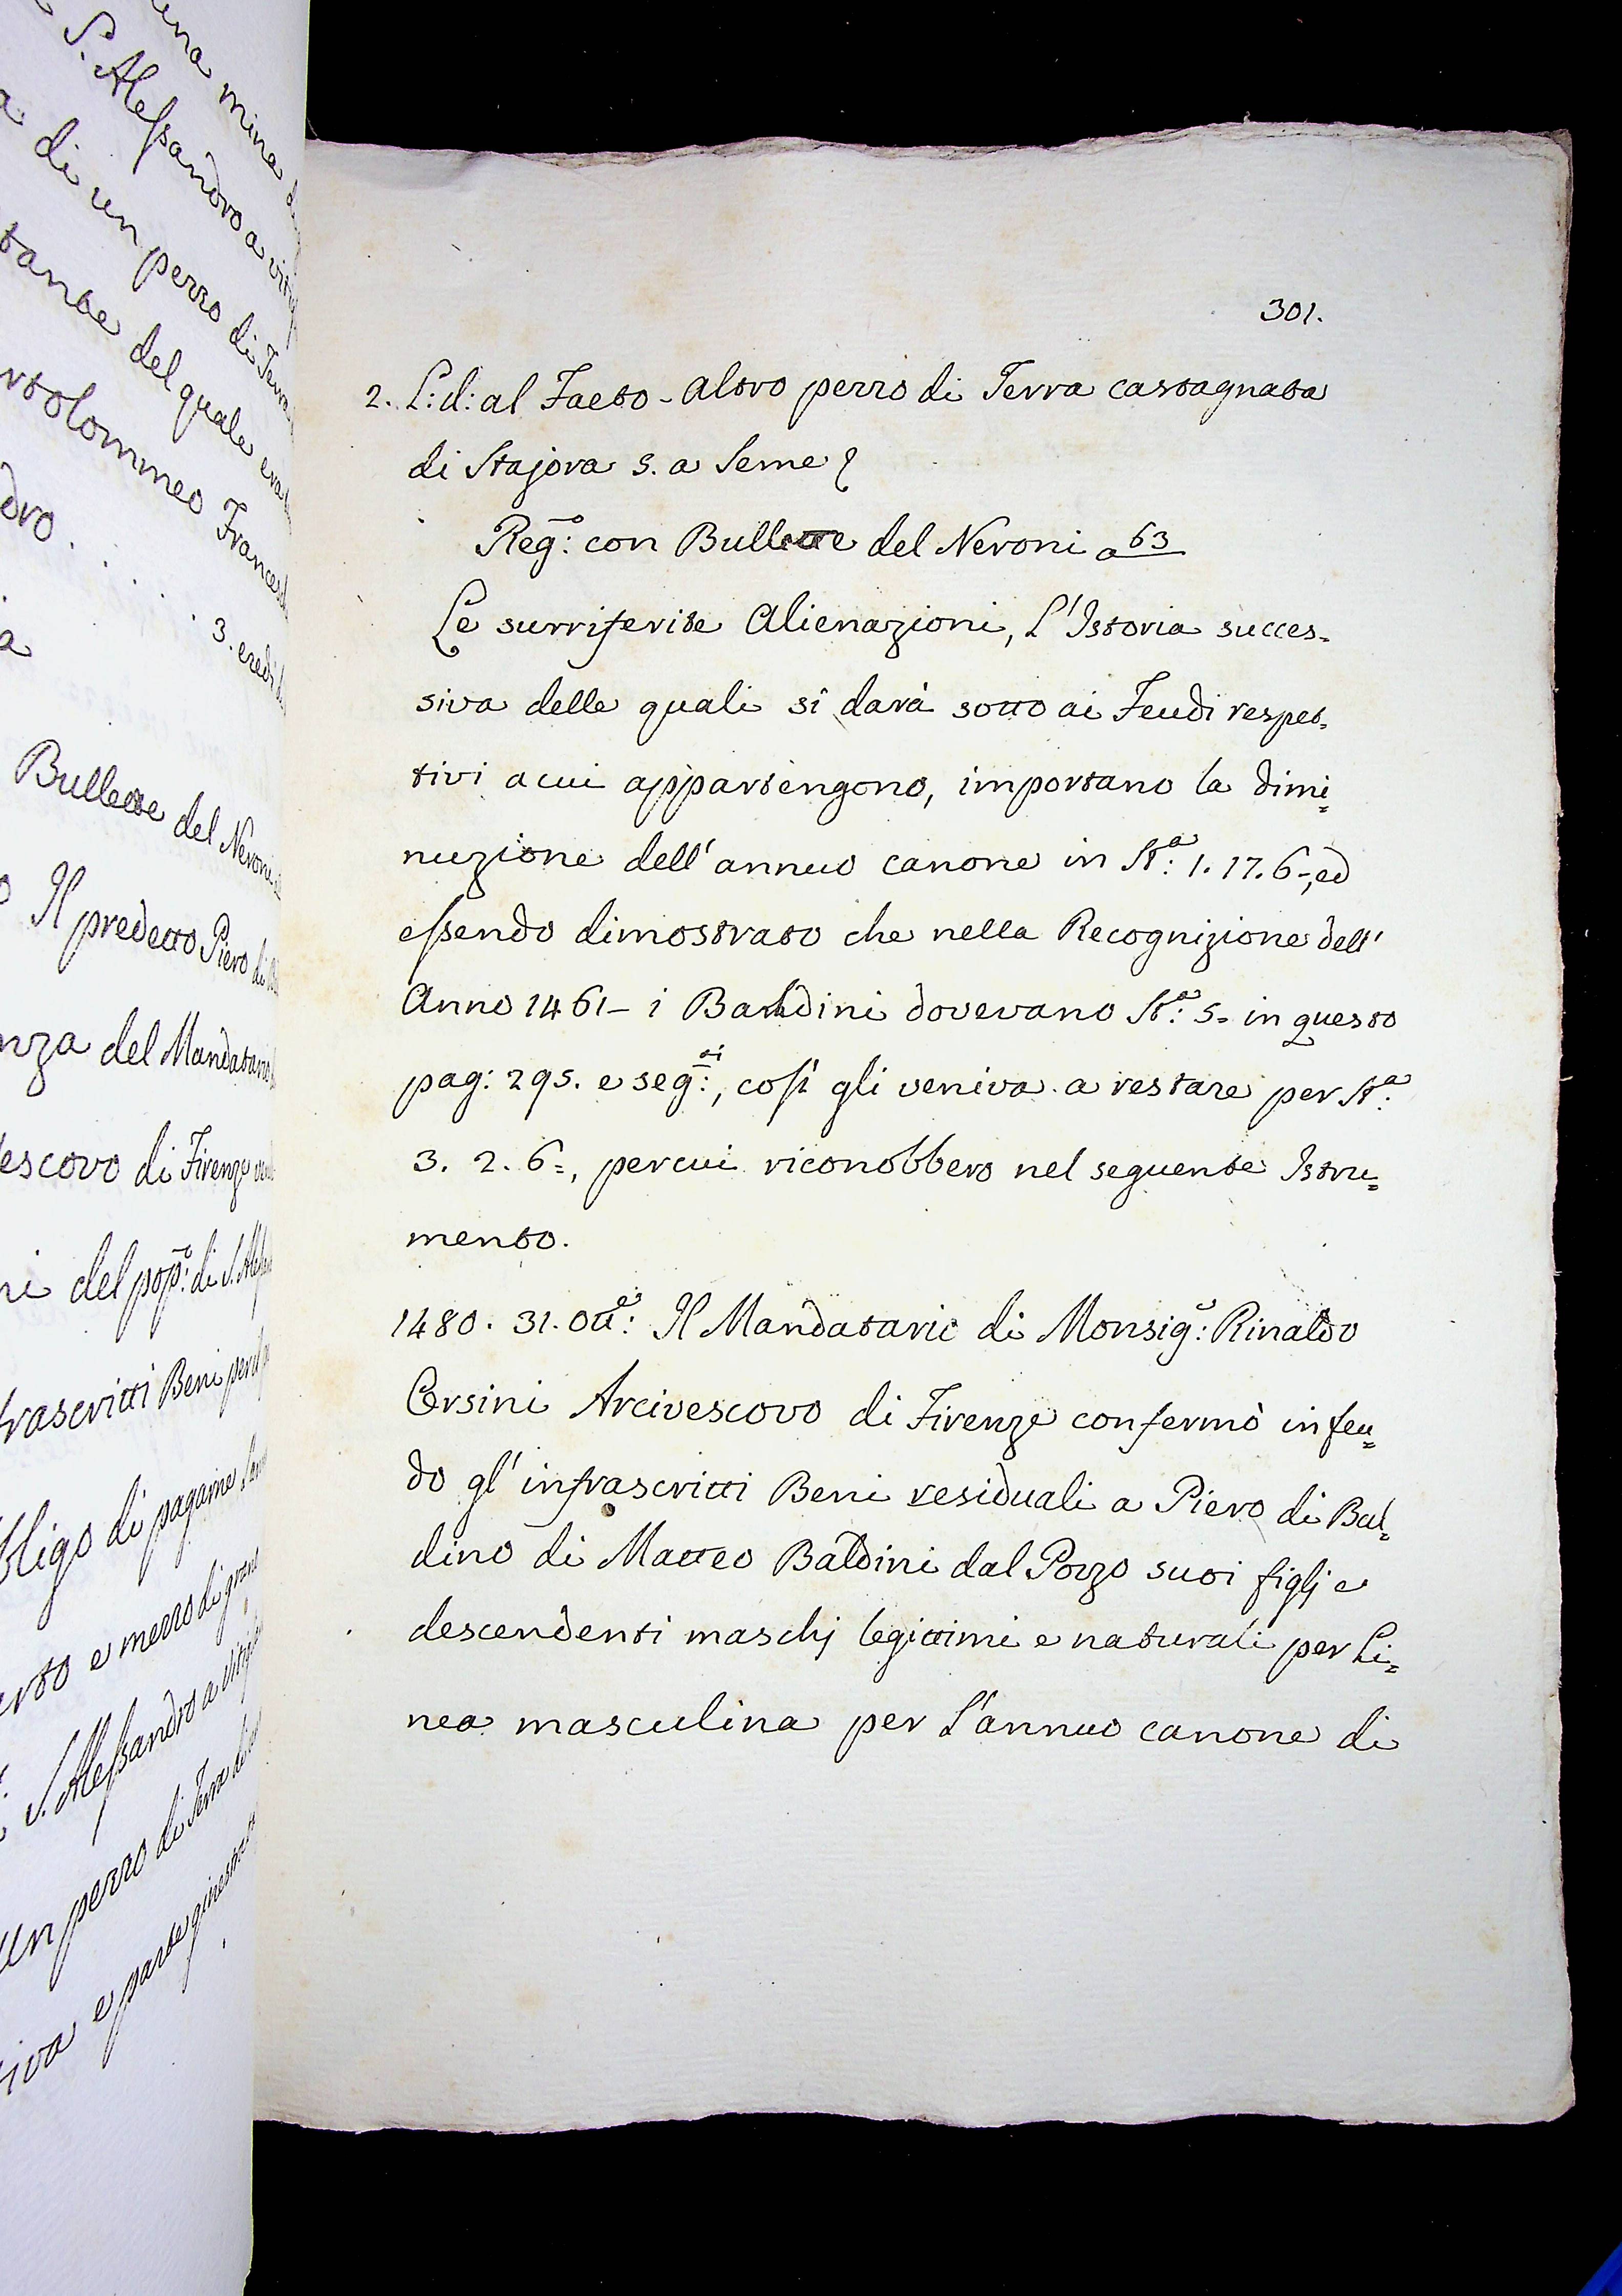 ena mina
S. Alessandro a
a di un pezzo di Terra
tante del quale era
rtolommeo Francesc
dro . . . .
3. eredi
a
Bullette del Neroni
Il predetto Piero di
nza del Mandatario
escovo di Firenze
ni del pop:º di S. Aless
frascritti Beni per
bligo di pagarne
erto e mezzo di grano
S. Alessandro a Vitigl
un pezzo di Terra
iva e parte ginestrata
301.
2. L: d: al Faeto - altro pezzo di Terra castagnata
di Stajora 5. a Seme
Reg:º con Bullette del Neroni a 63
Le surriferite Alienazioni, L'Istoria succes=
siva delle quali si darà sotto ai Feudi respet=
tivi a cui appartengono, importano la dimi=
nuzione dell'annuo canone in St:ª 1. 17. 6-, ed
essendo dimostrato che nella Recognizione dell'
Anno 1461 - i Baldini dovevano St:ª 5- in questo
pag: 295. e seg:ti, così gli veniva a restare per St:ª
3. 2. 6=, per cui riconobbero nel seguente Istru=
mento.
1480. 31. Ott:e Il Mandatario di Monsig:e Rinaldo
Orsini Arcivescovo di Firenze confermò in feu=
do gl'infrascritti Beni residuali a Piero di Bal=
dino di Matteo Baldini dal Pozzo suoi figlj e
descendenti maschj legittimi e naturali per Li=
nea masculina per l'annuo canone di